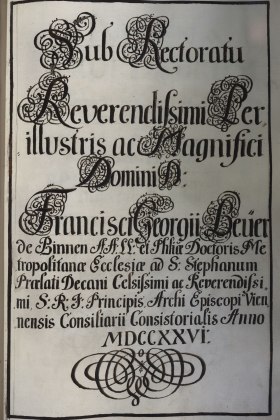 Sub Rectoratu
Reverendissimi Per
illustris ac Magnifici
Domini D:
Francisci Georgii Beüer
de Binnen A.A.LL. et Phiæ Doctoris Me
tropolitanæ Ecclesiæ ad S: Stephanum
Prælati Decani Celsissimi ac Reverendissi
mi S: R: I: Principis Archi Episcopi Vien
nensis Consiliarii Consistorialis Anno
MDCCXXVI: